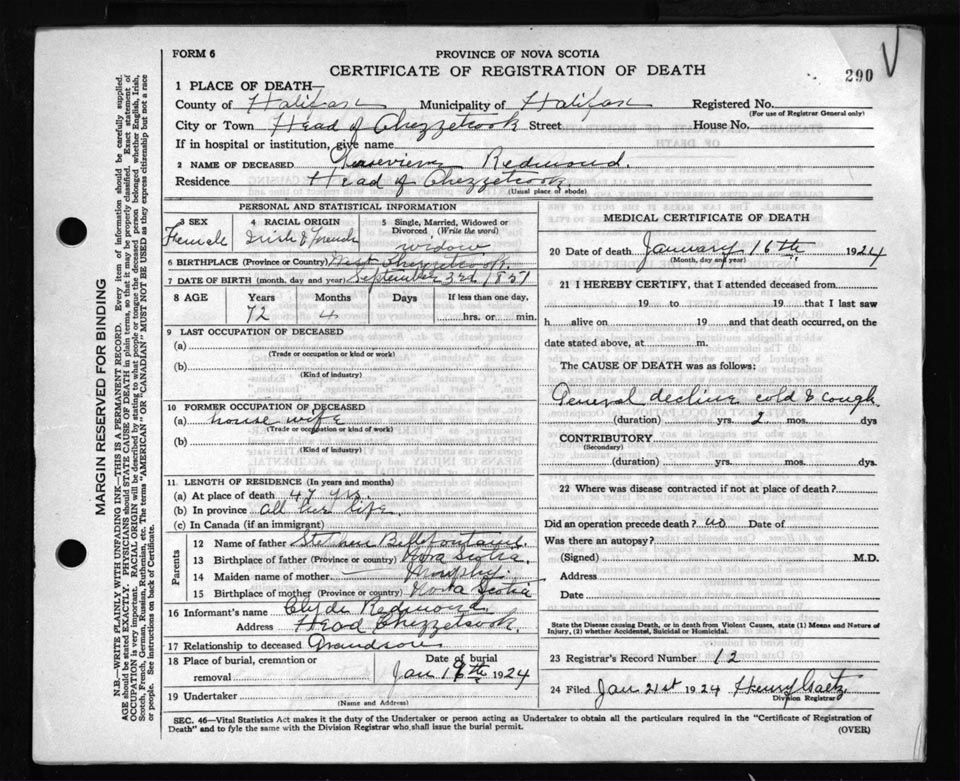 FORM 6
PROVINCE OF NOVA SCOTIA
CERTIFICATE OF REGISTRATION OF DEATH
290 V
1 PLACE OF DEATH—
County of Halifax Municipality of Halifax Registered No.
(For use of Registrar General only)
City or Town Head of Chezzetcook Street House No.
If in hospital or institution, give name
2 NAME OF DECEASED Redmond.
Residence Head of Chezzetcook
(Usual place of abode)
PERSONAL AND STATISTICAL INFORMATION
3 SEX Female
4 RACIAL ORIGIN Irish & French
5 Single, Married, Widowed or Divorced (Write the word) widow
6 BIRTHPLACE (Province or Country) West Chezzetcook.
7 DATE OF BIRTH (month, day and year) September 3rd 1851
8 AGE Years Months Days If less than one day,
72 4 hrs. or min.
9 LAST OCCUPATION OF DECEASED
(a)
(Trade or occupation or kind or work)
(b)
(Kind of industry)
10 FORMER OCCUPATION OF DECEASED
(a) house wife
(Trade or occupation or kind of work)
(b)
(Kind of industry)
11 LENGTH OF RESIDENCE (In years and months)
(a) At place of death 47 yrs.
(b) In province all her life.
(c) In Canada (if an immigrant)
Parents
12 Name of father Bellefontaine.
13 Birthplace of father (Province or country) Nova Scotia
14 Maiden name of mother Murphy.
15 Birthplace of mother (Province or country) Nova Scotia
16 Informant's name Clyde Redmond
Address Head Chezzetcook.
17 Relationship to deceased Grandson
18 Place of burial, cremation or removal Date of burial
Jan 1924
19 Undertaker
(Name and Address)
MEDICAL CERTIFICATE OF DEATH
20 Date of death January 16th 1924
(Month, day and year)
21 I HEREBY CERTIFY, that I attended deceased from
19 to 19 that I last saw
h alive on 19 and that death occurred, on the
date stated above, at m.
The CAUSE OF DEATH was as follows:
General decline cold & cough
(duration) yrs. 2 mos. dys
CONTRIBUTORY
(Secondary)
(duration) yrs. mos. dys.
22 Where was disease contracted if not at place of death?
Did an operation precede death? no Date of
Was there an autopsy?
(Signed) M.D.
Address
Date
State the Disease causing Death, or in death from Violent Causes, state (1) Means and Nature of
Injury, (2) whether Accidental, Suicidal or Homicidal.
23 Registrar's Record Number 12
24 Filed Jan 21st 1924 Henry Gaetz
Division Registrar
SEC. 46—Vital Statistics Act makes it the duty of the Undertaker or person acting as Undertaker to obtain all the particulars required in the "Certificate of Registration of
Death" and to fyle the same with the Division Registrar who shall issue the burial permit.
(OVER)
MARGIN RESERVED FOR BINDING
N.B.—WRITE PLAINLY WITH UNFADING INK—THIS IS A PERMANENT RECORD. Every item of information should be carefully supplied.
AGE should be stated EXACTLY. PHYSICIANS should STATE CAUSE OF DEATH in plain terms, so that it may be properly classified. Exact statement of
OCCUPATION is very important. RACIAL ORIGIN will be described by stating to what people or tongue the deceased person belonged whether English, Irish,
Scotch, French, German, Russian, Ruthenian, etc. The terms "AMERICAN" OR "CANADIAN" MUST NOT BE USED as they express citizenship but not a race
or people. See instructions on back of Certificate.